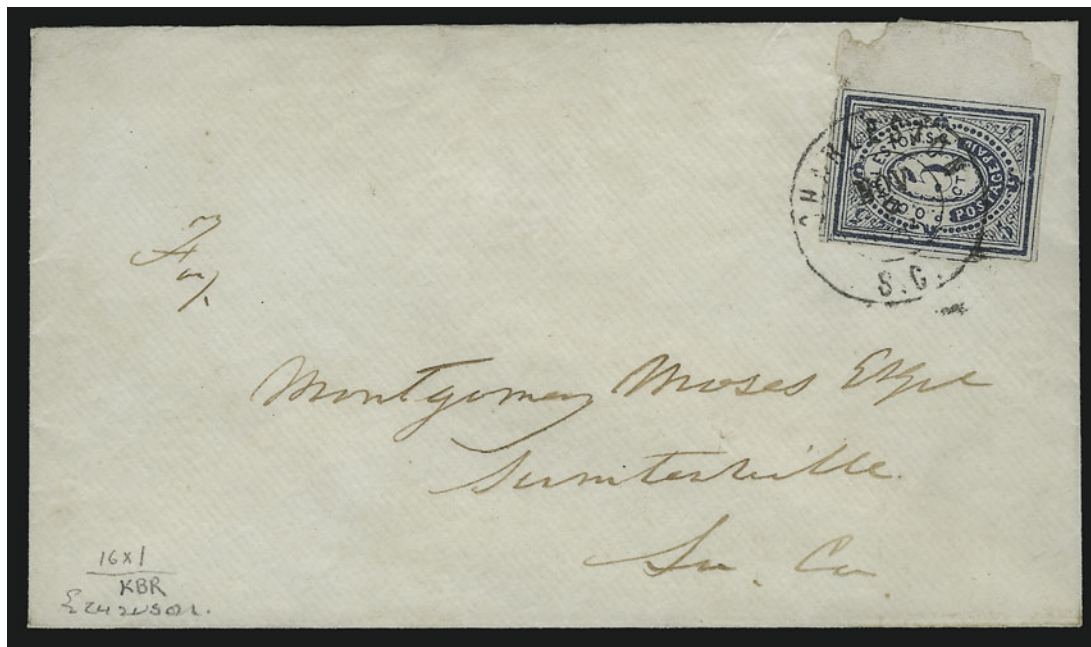 CHARLESTON
S.C.
CHARLESTON S.C.
P.O.
POSTAGE PAID
5
CTS
For
Montgomery Moses Esqre
Sumterville
So. Ca
16x1
KBR